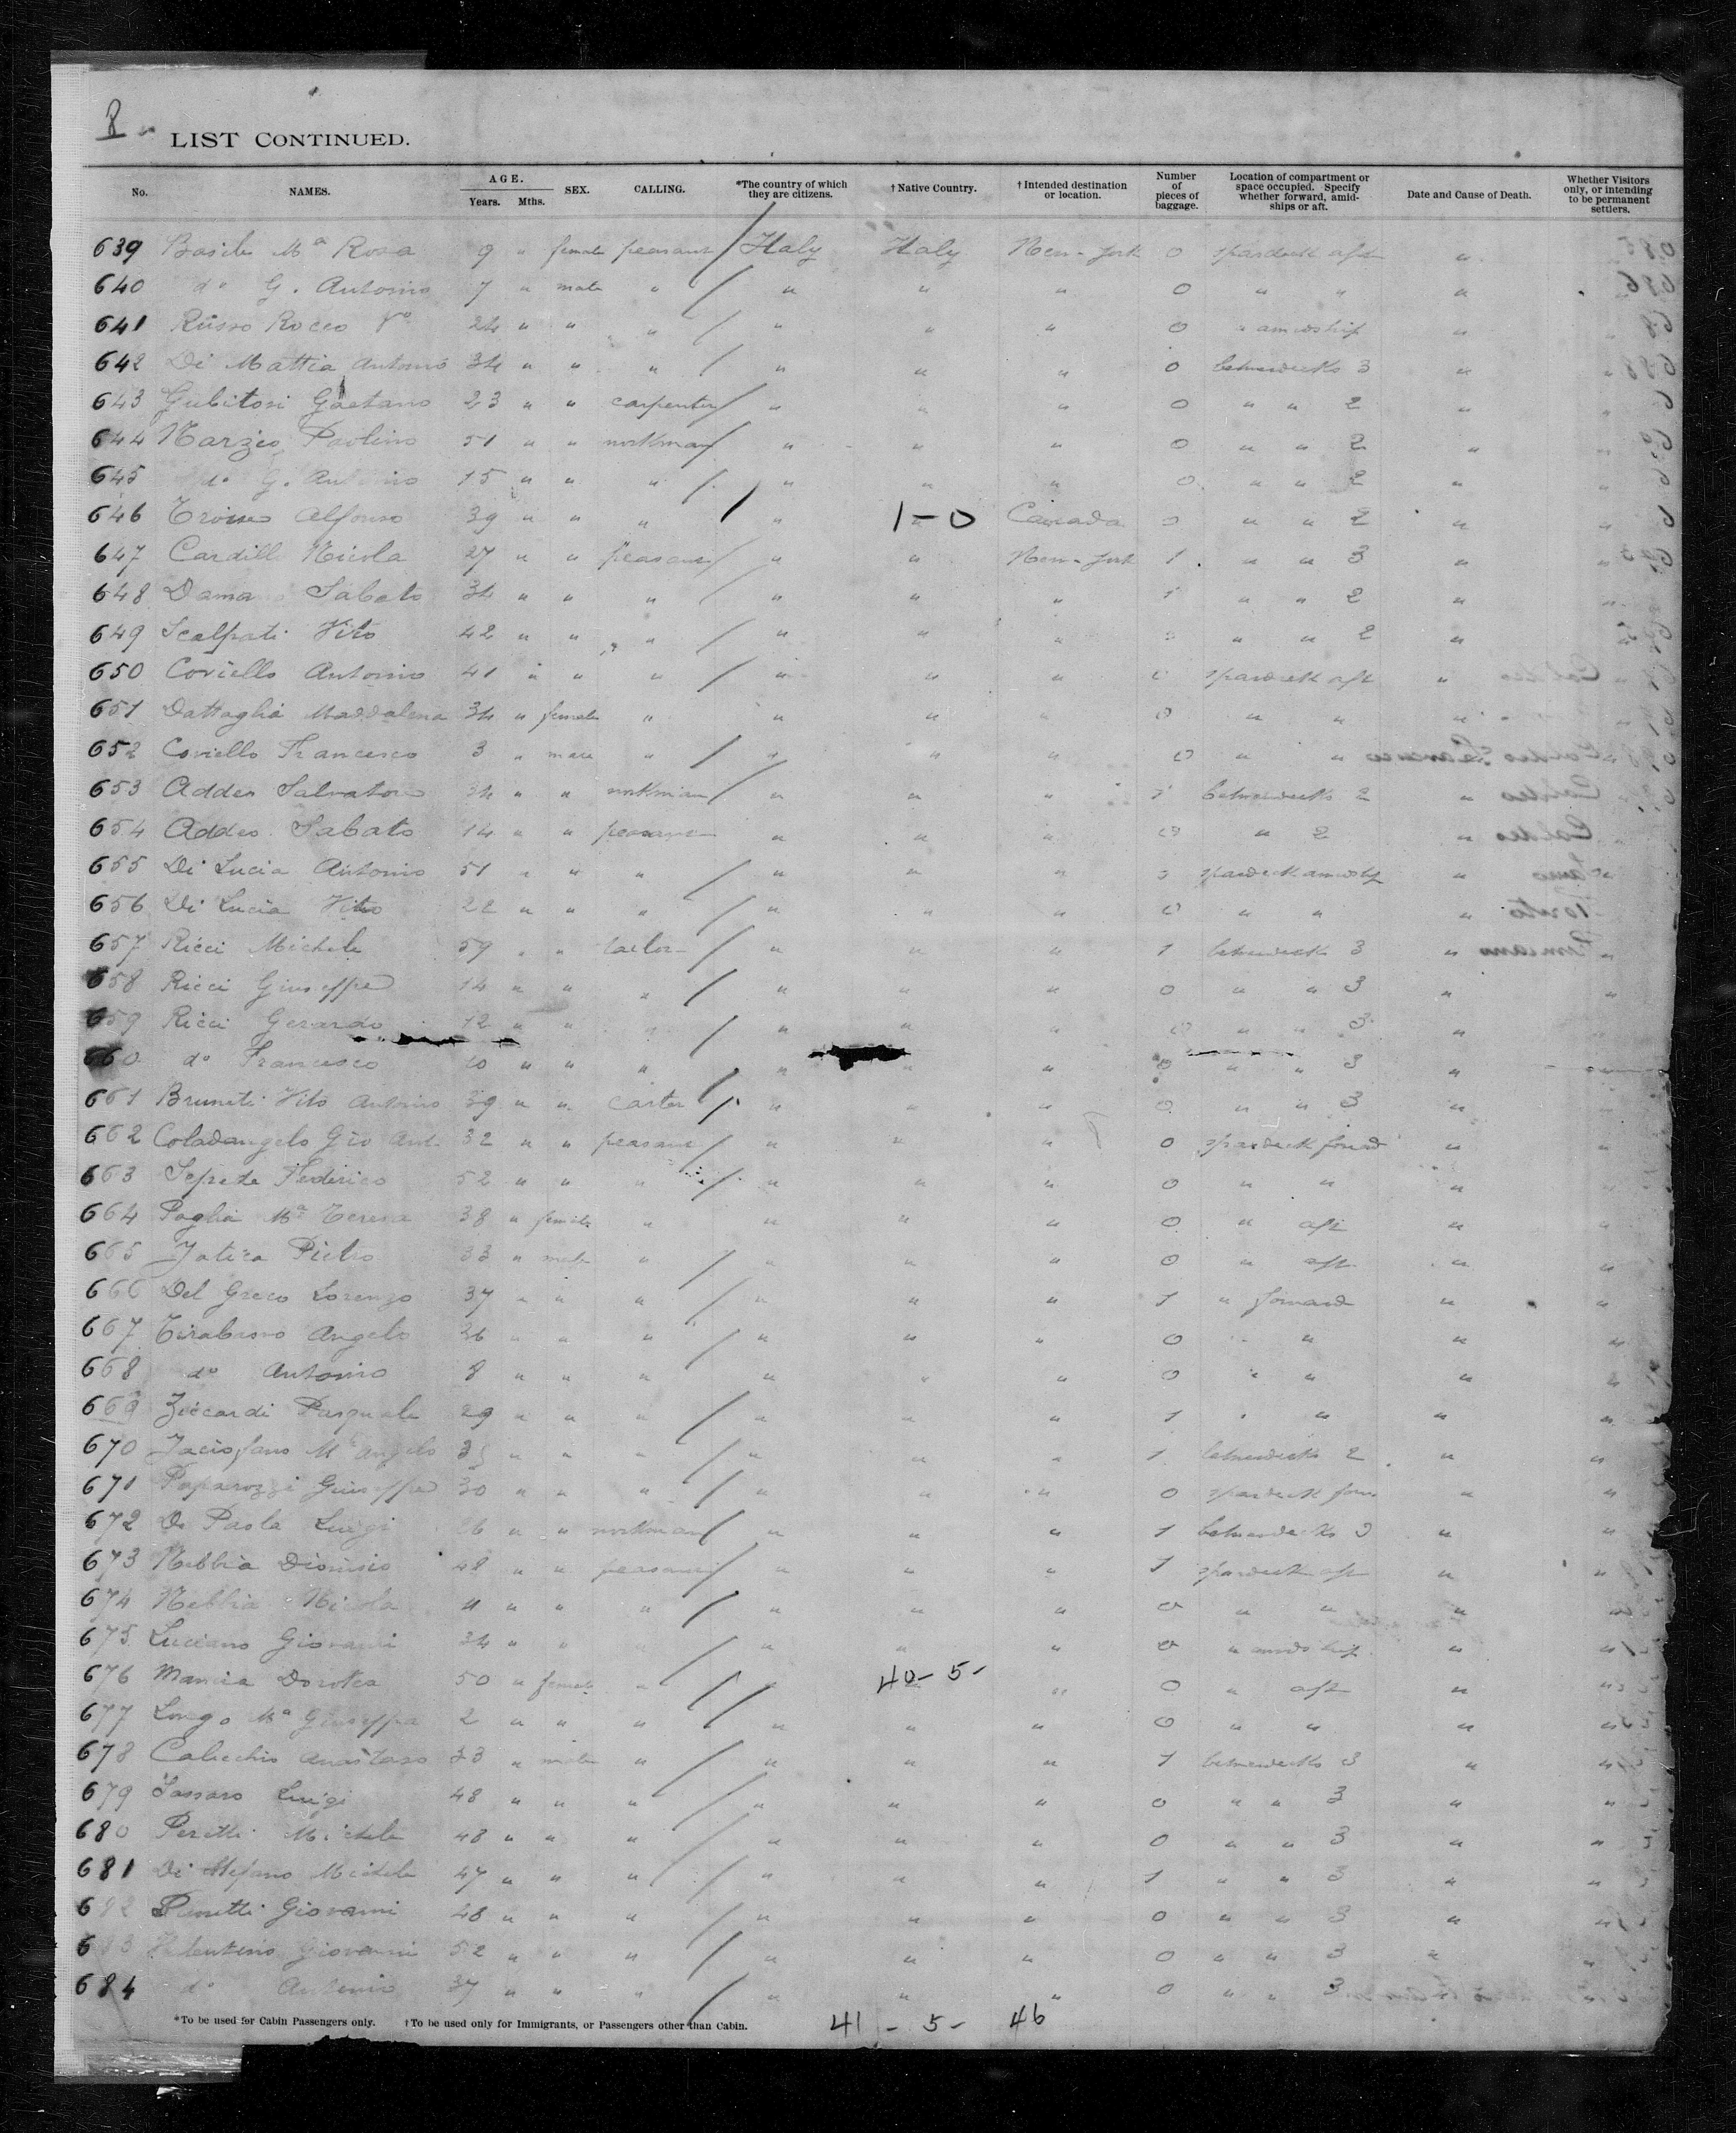 8
LIST CONTINUED.
No. NAMES. AGE. Years. Mths. SEX. CALLING. *The country of which they are citizens. †Native Country. †Intended destination or location. Number of pieces of baggage. Location of compartment or space occupied. Specify whether forward, amidships or aft. Date and Cause of Death. Whether Visitors only, or intending to be permanent settlers.
639 Basile Mª Rosa 9 " female peasant Italy Italy New-York 0 spardeck aft "
640 dº G. Antonio 7 " male " " " " 0 " " "
641 Russo Rocco 24 " " " " " " 0 " amidship "
642 Di Mattia Antonio 34 " " " " " " 0 betweendecks 3 "
643 Gubitosi Gaetano 23 " " carpenter " " " 0 " " 2 "
644 Narzio Paolino 51 " " workman " " " 0 " " 2 "
645 dº G. Antonio 15 " " " " " " 0 " " 2 "
646 Alfonso 39 " " " " 1-0 Canada 0 " " 2 "
647 Cardill Nicola 27 " " peasant " " New-York 1 " " 3 "
648 Sabato 34 " " " " " " 1 " " 2 "
649 Scalpati Vito 42 " " " " " " " " 2 "
650 Coviello Antonio 41 " " " " " " 0 spardeck aft "
651 Battaglia Maddalena 34 " female " " " " 0 " " "
652 Coviello Francesco 3 " male " " " " 0 " " "
653 Addeo Salvatore 34 " " workman " " " 1 betweendecks 2 "
654 Addeo Sabato 14 " " peasant " " " 0 " 2 "
655 Di Lucia Antonio 51 " " " " " " 0 spardeck amidship "
656 Di Lucia Vito 22 " " " " " " 0 " " "
657 Ricci Michele 59 " " tailor " " " 1 betweendecks 3 " "
658 Ricci Giuseppe 14 " " " " " " 0 " " 3 " "
659 Ricci Gerardo 12 " " " " " " 0 " " 3 "
660 dº Francesco 10 " " " " " " 0 " " 3 "
661 Bruneti Vito Antonio 39 " " carter " " " 0 " " 3 " "
662 Coladangelo Gio Ant. 32 " " peasant " " " 0 spardeck forwd " "
663 Sepede Federico 52 " " " " " " 0 " " " "
664 Paglia Mª Teresa 38 " female " " " " 0 " aft " "
665 Jatica Pietro 33 " male " " " " 0 " aft " "
666 Del Greco Lorenzo 37 " " " " " " 1 " forward " "
667 Tirabasso Angelo 36 " " " " " " 0 " " " "
668 dº Antonio 8 " " " " " " 0 " " " "
669 Ziccardi Pasquale 29 " " " " " " 1 " " " "
670 Angelo " " " " " " 1 betweendecks 2 " "
671 Paparozzi Giuseppe 30 " " " " " " 0 spardeck forw " "
672 De Paola Luigi 26 " " workman " " " 1 betweendecks 3 " "
673 Nebbia Dionisio 48 " " peasant " " " 1 spardeck aft " "
674 Nebbia Nicola 11 " " " " " " 0 " " " "
675 Luciano Giovanni 34 " " " " " " 0 " amidship " "
676 Mancia Dorotea 50 " female " " 40-5- " 0 " aft " "
677 Longo Mª Giuseppa 2 " " " " " " 0 " " " "
678 Calicchio Anastaso 33 " male " " " " 1 betweendecks 3 " "
679 Sassaro Luigi 48 " " " " " " 0 " " 3 " "
680 Peretti Michele 48 " " " " " " 0 " " 3 " "
681 Di Stefano Michele 47 " " " " " " 1 " " 3 " "
682 Giovanni 48 " " " " " " 0 " " 3 " "
683 Valentino Giovanni 52 " " " " " " 0 " " 3 " "
684 dº Antonio 37 " " " " " " 0 " " 3
*To be used for Cabin Passengers only. †To be used only for Immigrants, or Passengers other than Cabin. 41 - 5 - 46